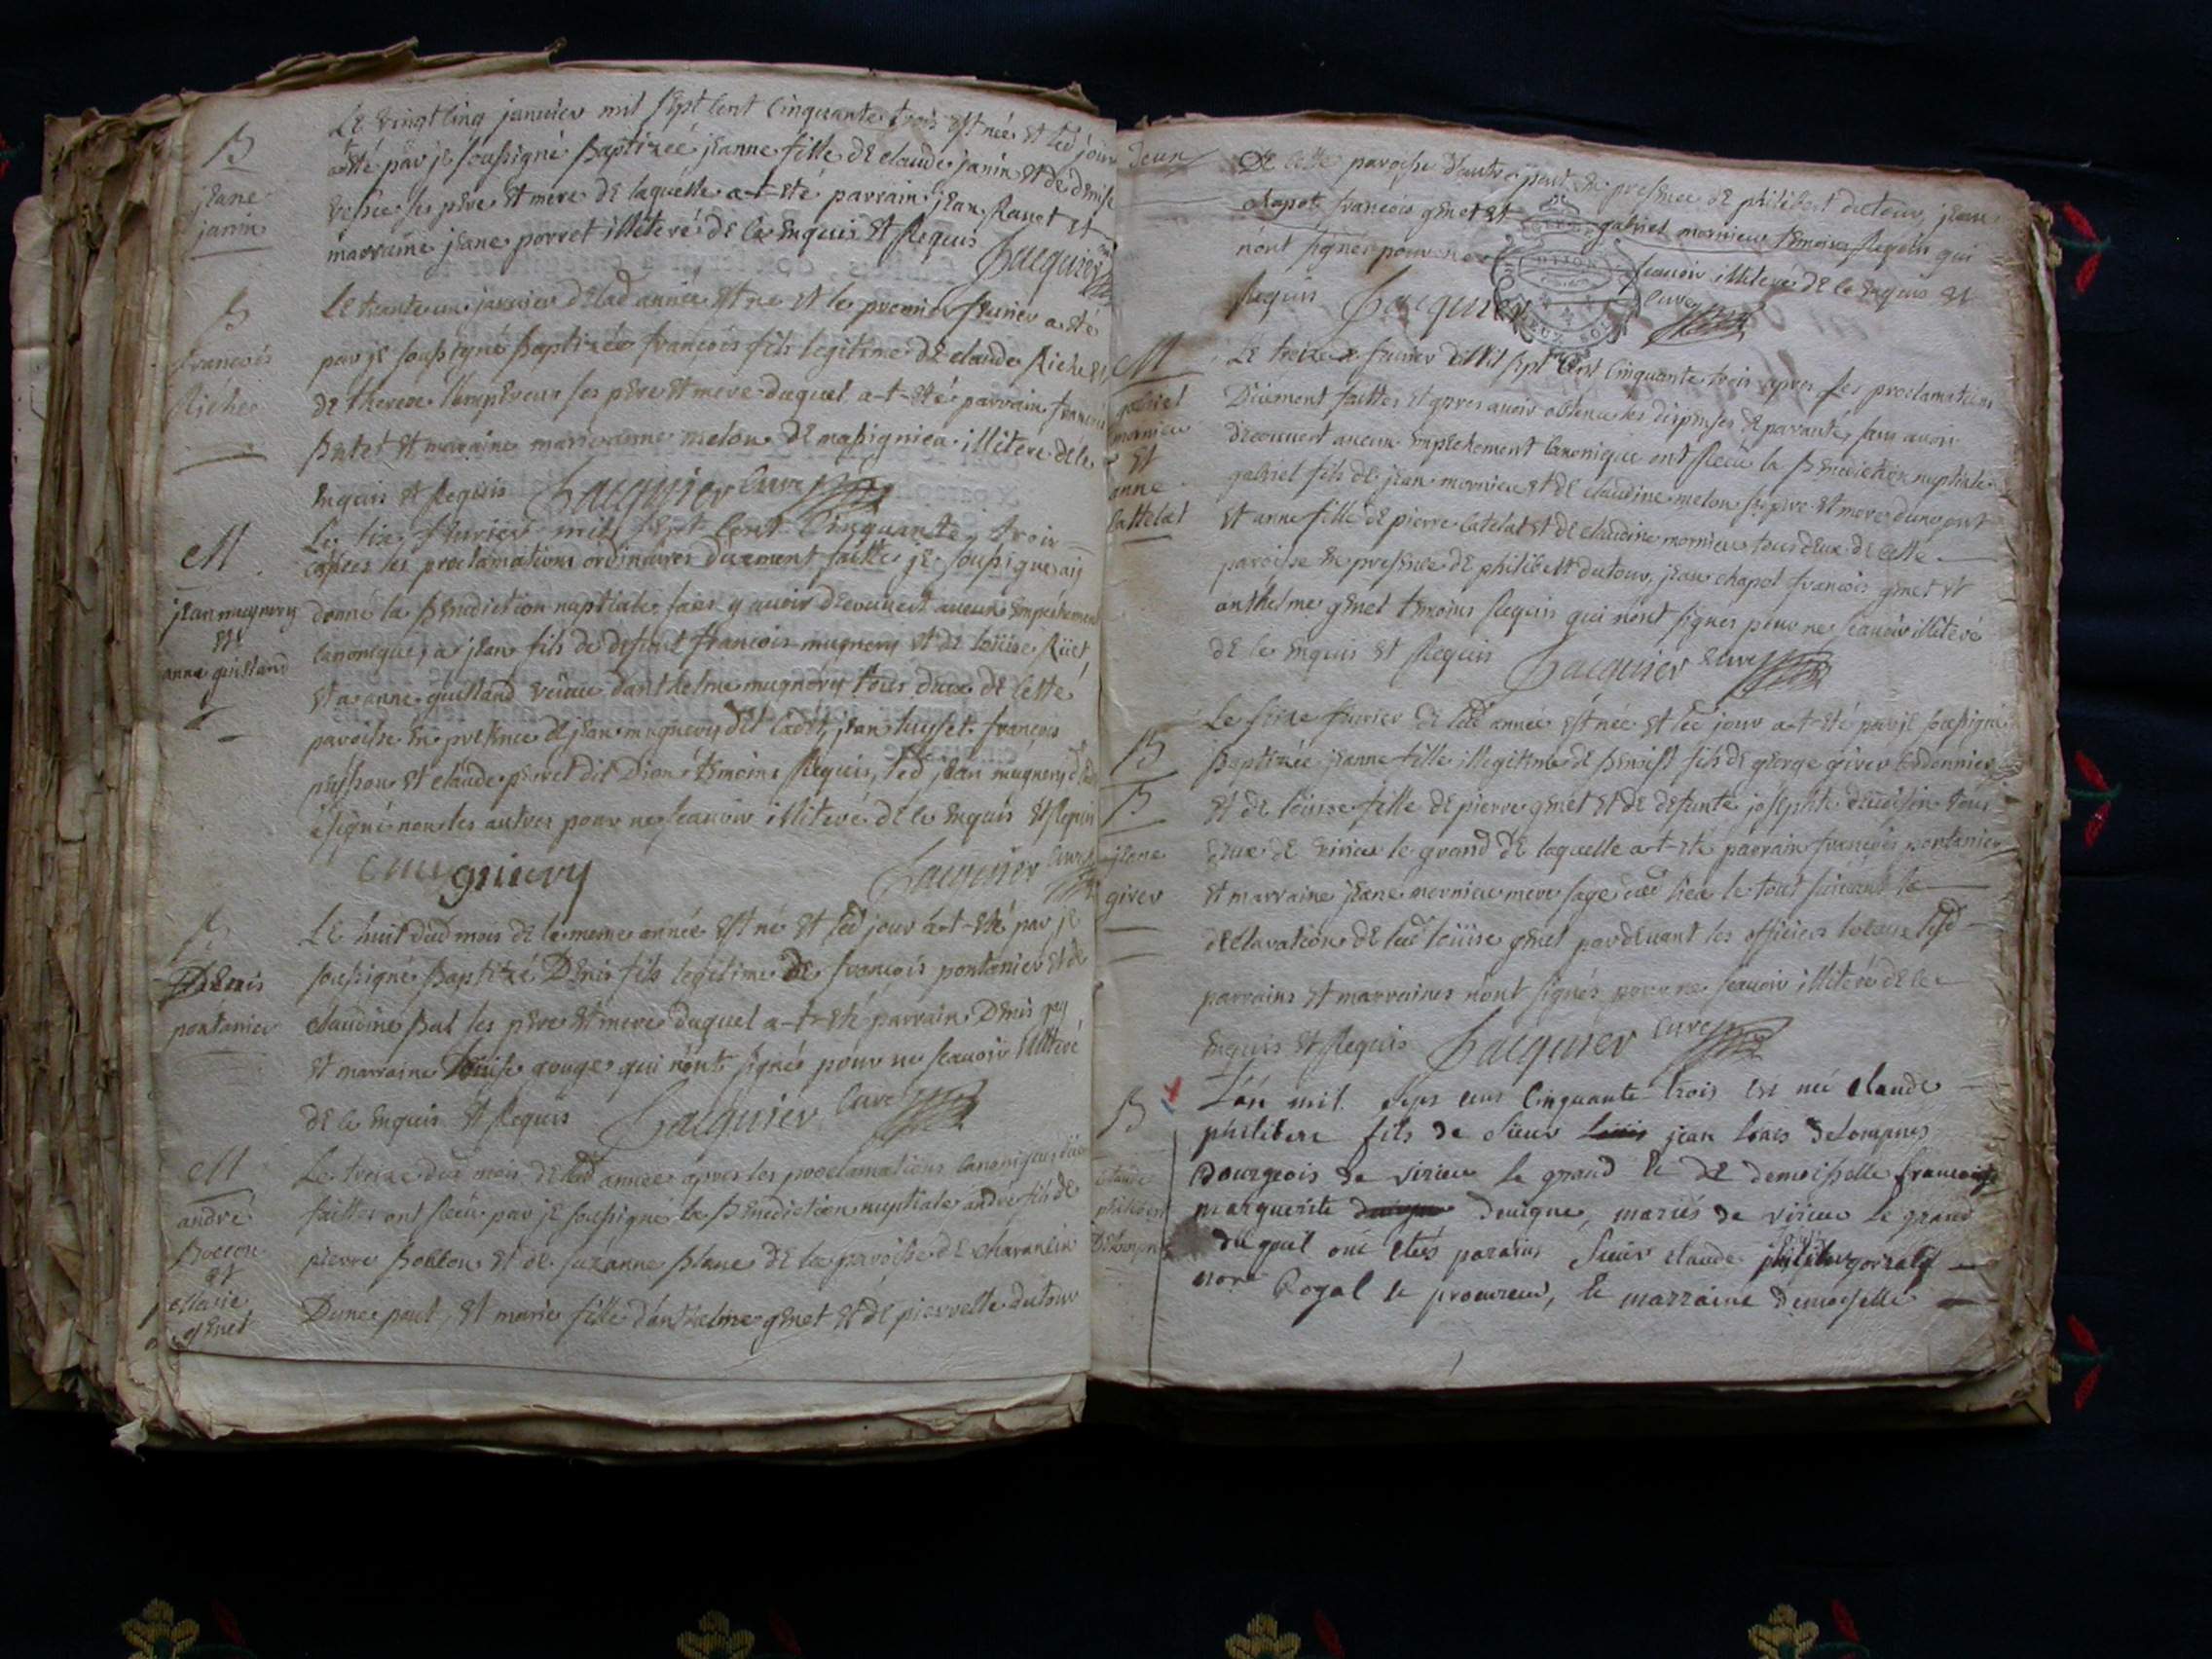 B
jeane
janin
Le vingt cinq janvier mil sept cent cinquante trois est née et led jour
a été par je soussigné baptizée jeanne fille de claude janin et de
ses père et mere de laquelle a-t-eté parrain jean et
marraine jeane porret illiteré de ce enquis et requis Jacquier
B
francois
Richer
Le trente un janvier delad année est né et le premier feurier a eté
par je soussigné baptizé francois fils legitime de claude Riche et
de therese ses père et mere duquel a-t-eté parrain francois
et maraine marieanne melon de massignieu illitere de ce
enquis et requis Jacquier Curé
M
jean mugnery
et
anne guilland
Le six feurier mil sept cent cinquante trois
apres les proclamations ordinaires duement faittes je soussigné ay
donné la benediction nuptiale sans y auoir decouuert aucun empechement
canonique, a jean fils de defunt francois mugnery et de loüise Rüet
et a anne guilland veuue danthelme mugnery tous deux de cette
paroisse en presence de jean mugnery dit jean francois
et claude perret dit Dion temoins requis, led jean mugnery
a signé non les autres pour ne scauoir illiteré de ce enquis et requis
mugniery Jacquier Curé
B
Denis
pontanier
Le huit dud mois de la meme année est né et led jour a-t-eté par je
soussigné baptizé Denis fils legitime de francois pontanier et de
claudine but ses père et mere duquel a-t-eté parrain Denis gey
et marraine loüise gouge qui n'ont signés pour ne scauoir illiteré
de ce enquis et requis Jacquier Curé
M
andré
et
Marie
genet
Le treize dud mois delad année apres les proclamations canoniques
faittes ont receu par je soussigné la benediction nuptiale andré fils de
pierre et de suzanne blanc de la paroisse de charancin
Dune part, et marie fille d'anthelme genet et de pierrette dutour
de cette paroisse d'autre part en presence de philibert dutour, jean
chapot francois genet et gabriel mornieu temoins requis qui
n'ont signés pour ne scauoir illiteré de ce enquis et
requis Jacquier Curé
M
gabriel
mornieu
et
anne
Cattelat
Le treize feurier mil sept cent cinquante trois apres les proclamations
Duement faittes et apres auoir obtenu les dispenses de paranté, sans auoir
decouuert aucun empechement canonique ont receu la benediction nuptiale
gabriel fils de jean mornieu et de claudine melon ses pere et mere dune part
et anne fille de pierre Catelat et de claudine mornieu tous deux de cette
paroisse en presence de philibert dutour, jean chapot francois genet et
anthelme genet temoins requis qui n'ont signes pour ne scauoir illiteré
de ce enquis et requis Jacquier Curé
B
B
jeane
giver
Le seize feurier de lad année est née et led jour a-t-eté par je soussigné
baptizée jeanne fille illegitime de benoist fils de george giver Cordonnier
et de loüise fille de pierre genet et de defunte josephte tous
deux de virieu le grand de laquelle a-t-eté parrain francois pontanier
et marraine jeane mornieu mere sage dud lieu le tout suiuant la
declaration de lad loüise genet pardeuant les officiers locaux lesd
parrains et marraines n'ont signés pour ne scauoir illiteré de ce
enquis et requis Jacquier Curé
B
Claude
philibert
Delompnes
L'an mil sept cens cinquante trois est né claude
philibert fils de sieur jean louis delompnes
Bourgeois de virieu le grand et de demoiselle francoise
marguerite deuigne, mariés de virieu le grand
duquel ont etés parains sieur claude philibert
Royal et procureur, et marraine demoiselle